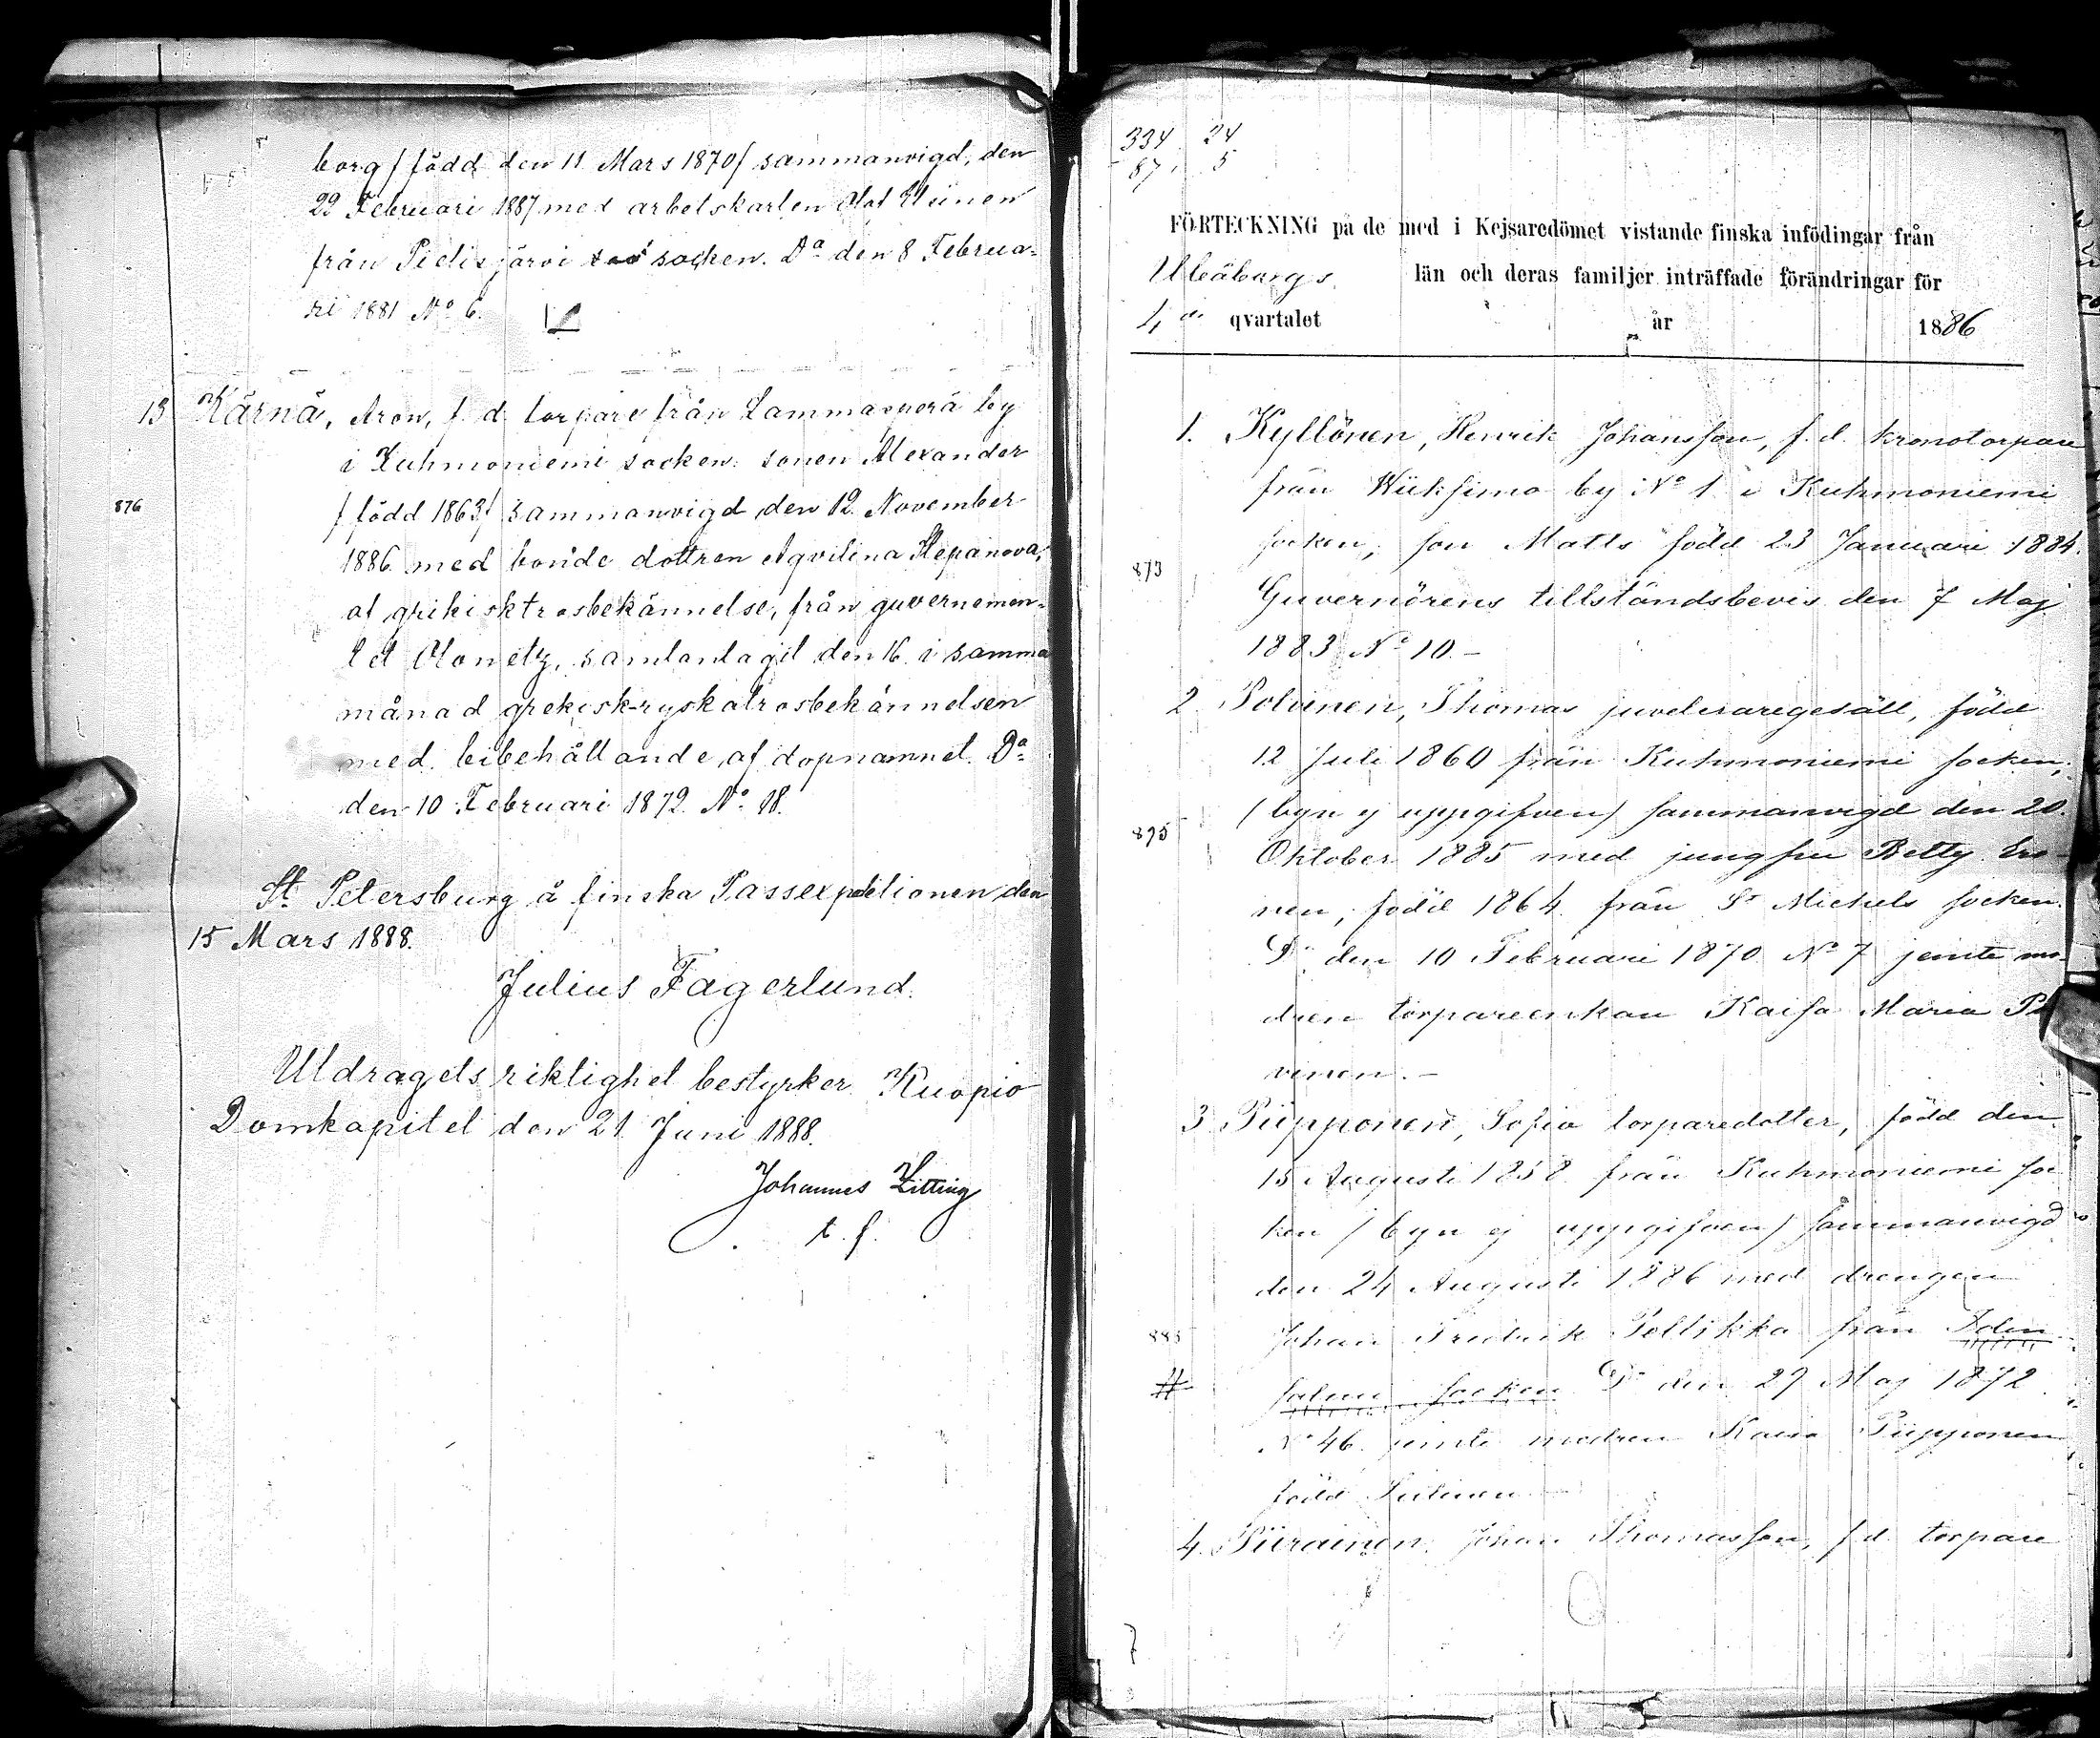 borg / född den 11 Mars 1870/ sammanvigd, den
22 Februari 1887 med arbetskarlen Olof
från Pielisjärvi socken. Da den 8 Februa-
ri 1881 No 6.
13 Kärnä, Aron, f. d. torpare från Lammasperä by
i Kuhmoniemi socken: sonen Alexander
876
/ född 1863/ sammanvigd den 12 November
1886 med bonde dottren Aqvilina Stepanova,
af grikisktrosbekännelse, från guvernemen-
tet Olonetz, samt antagit den 16 i samma
månad grekisk-ryska trosbekännelsen
med bibehållande af dopnamnet. Da
den 10 Februari 1872. No 18.
St Petersburg å finska Passexpeditionen den
15 Mars 1888.
Julius Fagerlund.
Utdragets riktighet bestyrker Kuopio
Domkapitel den 21 Juni 1888.
Johannes Zitting
t. f.
334 24
87 5
FÖRTECKNING på de med i Kejsaredömet vistande finska infödingar från
Uleåborgs län och deras familjer inträffade förändringar för
4de qvartalet år 1886
1. Kyllönen, Henrik Johansson, f. d. kronotorpare
från Wiiksimo by No 1 i Kuhmoniemi
socken, son Matts född 23 Januari 1884.
873
Guvernörens tillståndsbevis den 7 Maj
1883 No 10.-
2. Polvinen, Thomas juveleraregesäll, född
12 Juli 1860 från Kuhmoniemi socken,
(byn ej uppgifven) sammanvigd den 20.
875
Oktober 1885 med jungfru Betty
nen, född 1864 från St Michels socken.
Do den 10 Februari 1870 No 7 jemte mo-
dren torpareenkan Kaisa Maria Pol
vinen.-
3 Piipponen, Sofia torparedotter, född den
15 Augusti 1858 från Kuhmoniemi soc
ken / byn ej uppgifven/ sammanvigd
den 24 Augusti 1886 med drengen
883
Johan Fredrik Poltikka från Iden
#
salmi socken Do den 29 Maj 1872
No 46. jemte modren Kaisa Piipponen
född
4. Piirainen, Johan Thomasson, f d. torpare
7